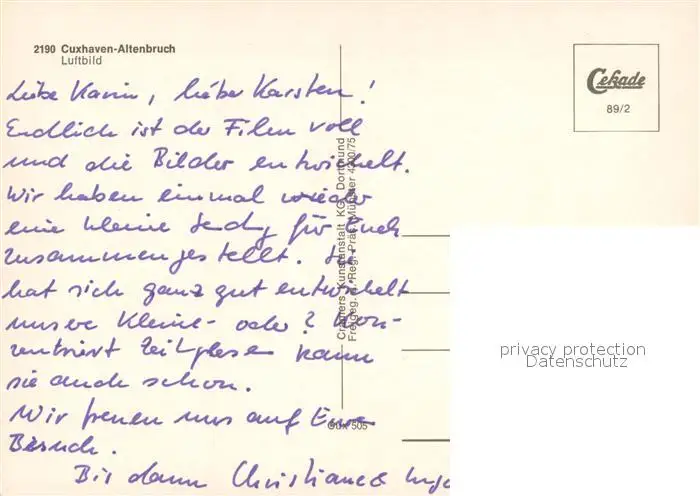 2190 Cuxhaven-Altenbruch
Luftbild
Cekade
89/2
Liebe Karin, lieber Karsten!
Endlich ist der Film voll
und die Bilder entwickelt.
Wir haben einmal wieder
eine kleine Sendg für Euch
zusammengestellt. Sie
hat sich ganz gut entwickelt
unsere Kleine - oder? Kon-
zentriert Zeitg lesen kann
sie auch schon.
Wir freuen uns auf Euren
Besuch.
Bis dann Christiane &
Cramers Kunstanstalt KG, Dortmund
Freigeg. d. Reg. Präs. Münster 4200/75
Cux 505
privacy protection
Datenschutz